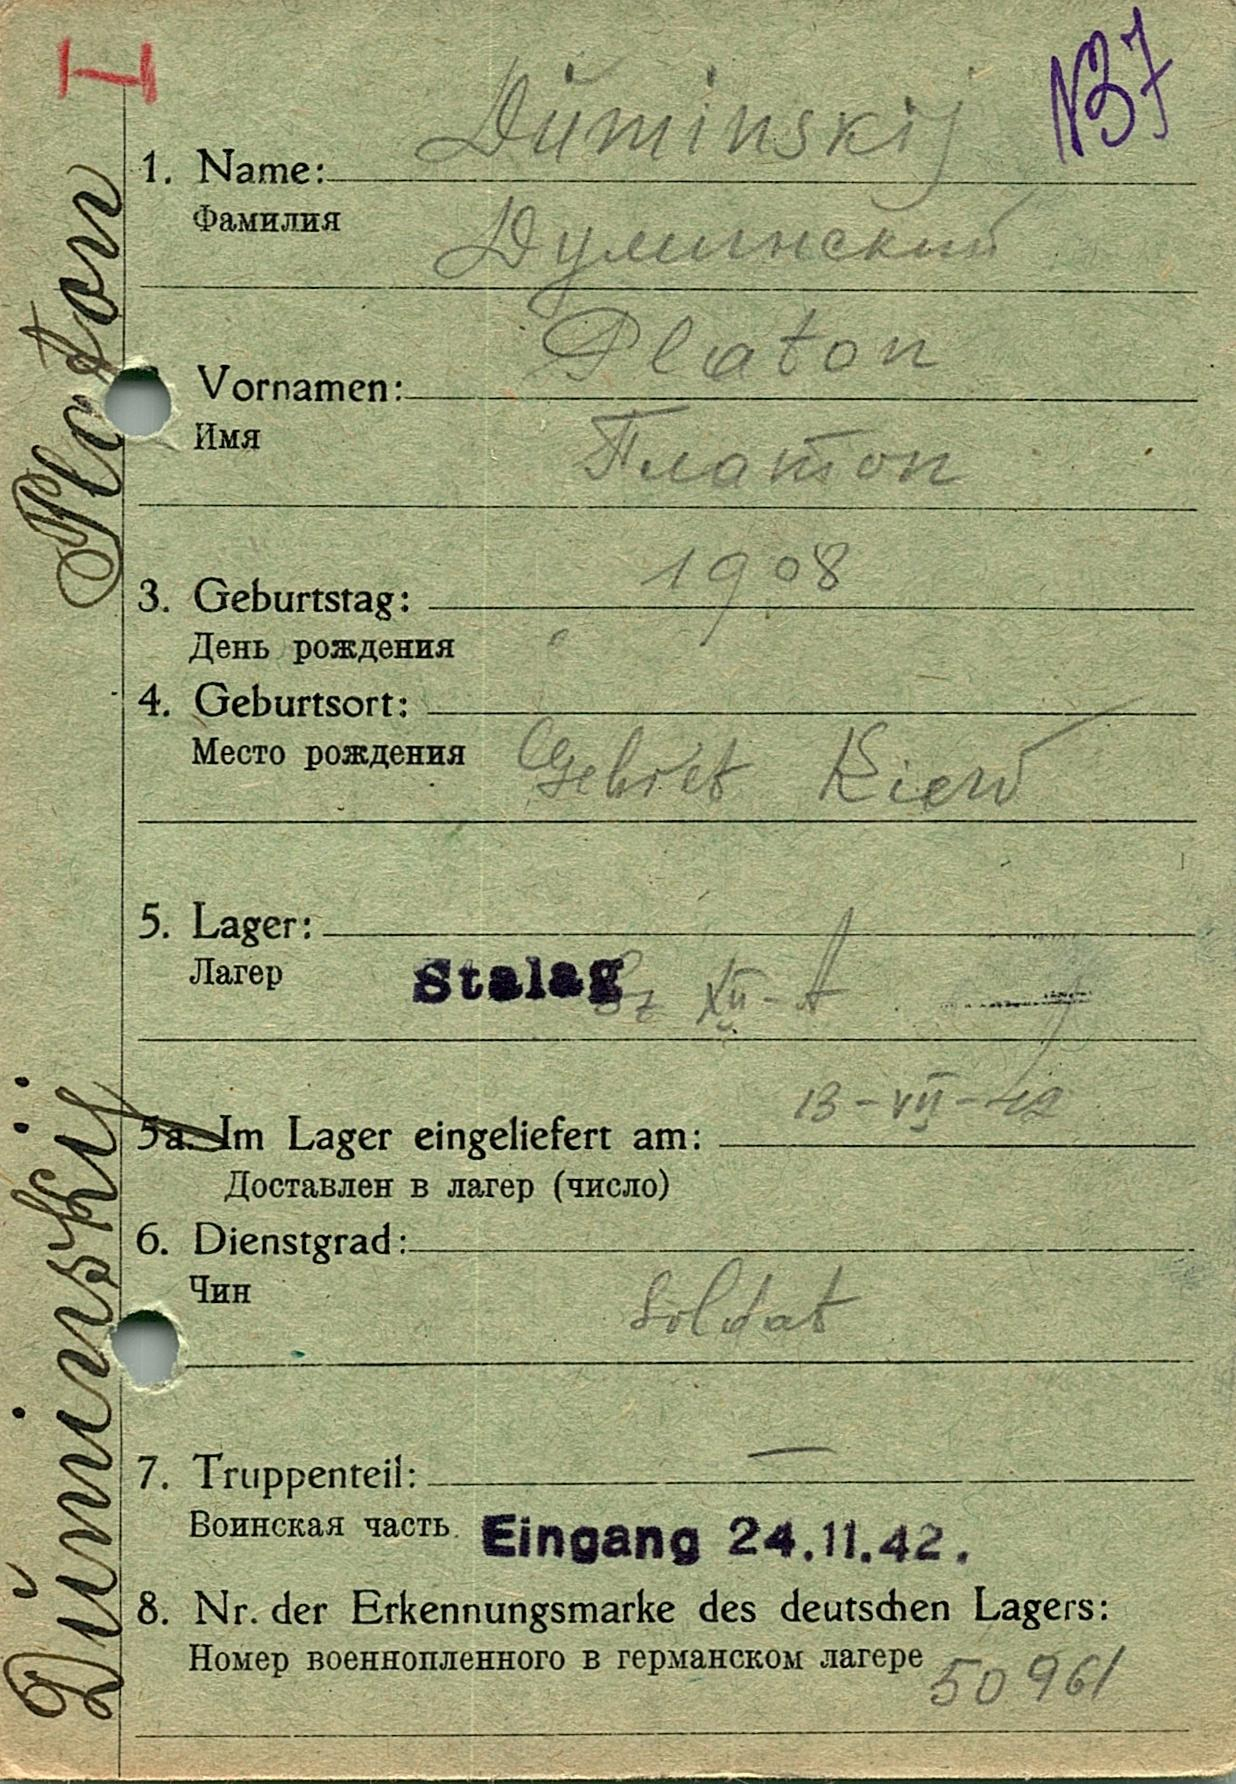 I
N37
Dŭminskij
1. Name:
Фамилия
Думинский
Platon
Vornamen:
Имя
Платон
1908
3. Geburtstag:
День рождения
4. Geburtsort:
Место рождения
Gebiet Kiew
5. Lager:
Лагер
Stalag XII-A
13-VII-42
5a. Im Lager eingeliefert am:
Доставлен в лагер (число)
6. Dienstgrad:
Чин
Soldat
7. Truppenteil: —
Воинская часть
Eingang 24.11.42.
8. Nr. der Erkennungsmarke des deutschen Lagers:
Номер военнопленного в германском лагере
50961
Dŭminskij Platon